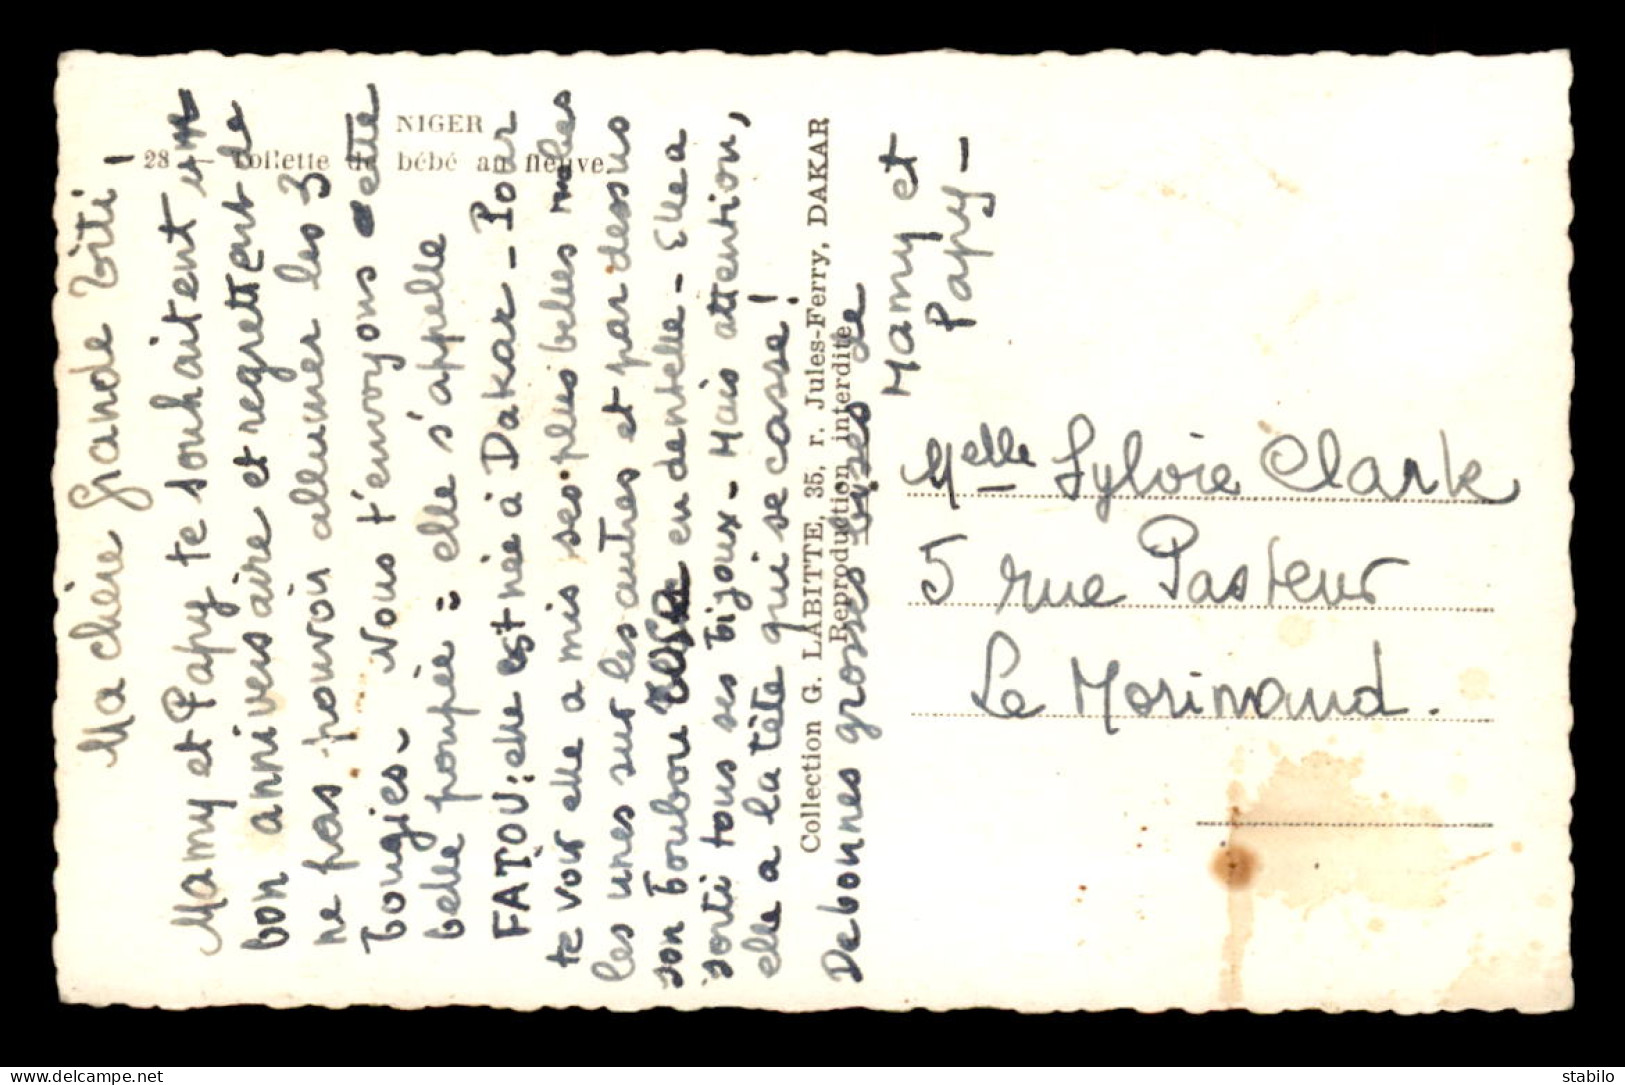 NIGER
28 — Toilette de bébé au fleuve.
Ma chère grande Titi!
Mamy et Papy te souhaitent un
bon anniversaire et regrettent de
ne pas pouvoir allumer les 3
bougies - Nous t'envoyons cette
belle poupée = elle s'appelle
FATOU : elle est née à Dakar - Pour
te voir elle a mis ses plus belles robes
les unes sur les autres et par dessus
son boubou en dentelle - Elle a
sorti tous ses bijoux - Mais attention,
elle a la tête qui se casse!
De bonnes grosses bises de
Mamy et
Papy -
Collection G. LABITTE, 35, r. Jules-Ferry, DAKAR
Reproduction interdite
Melle Sylvie Clark
5 rue Pasteur
Le Morimaud.
stabilo